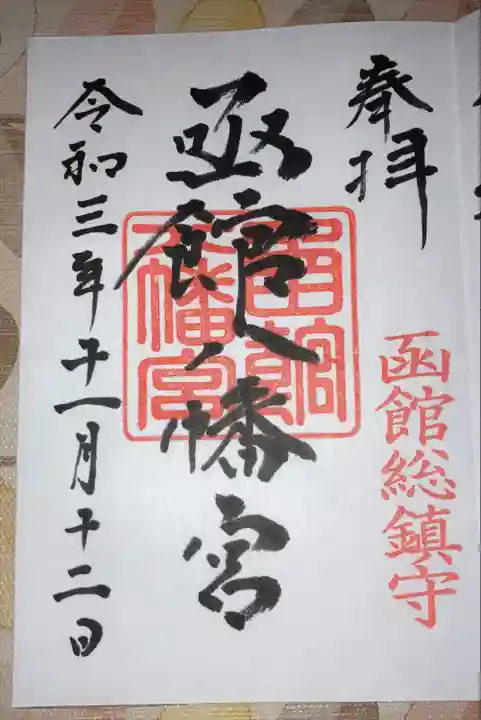 奉拝
函館総鎮守
函館八幡宮
函館八幡宮
令和三年十一月十二日